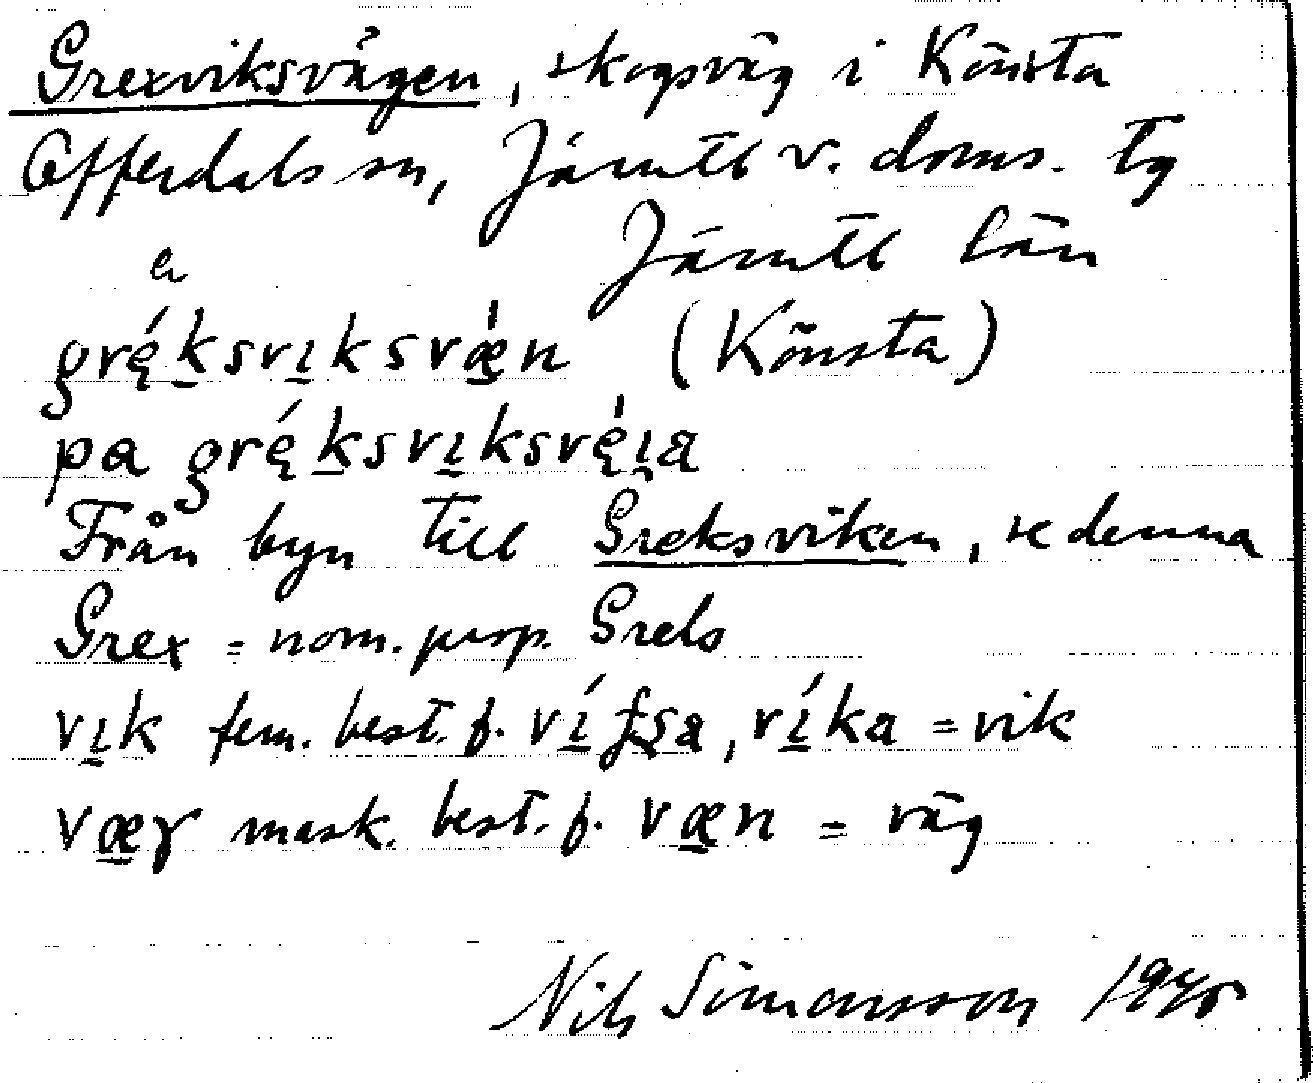 Grexviksvägen, skogsväg i Könsta
Offerdals sn, Jämtl v. doms. tg
Jämtl län
en
gręksvɪksvæn (Könsta)
pa gręksvɪksvęɪa
Från byn till Greksviken, se denna
Grex = nom. prop. Grels
vɪk fem. best. f. víʄʂa, víka = vik
væɣ mask. best. f. væn = väg
Nils Simonsson